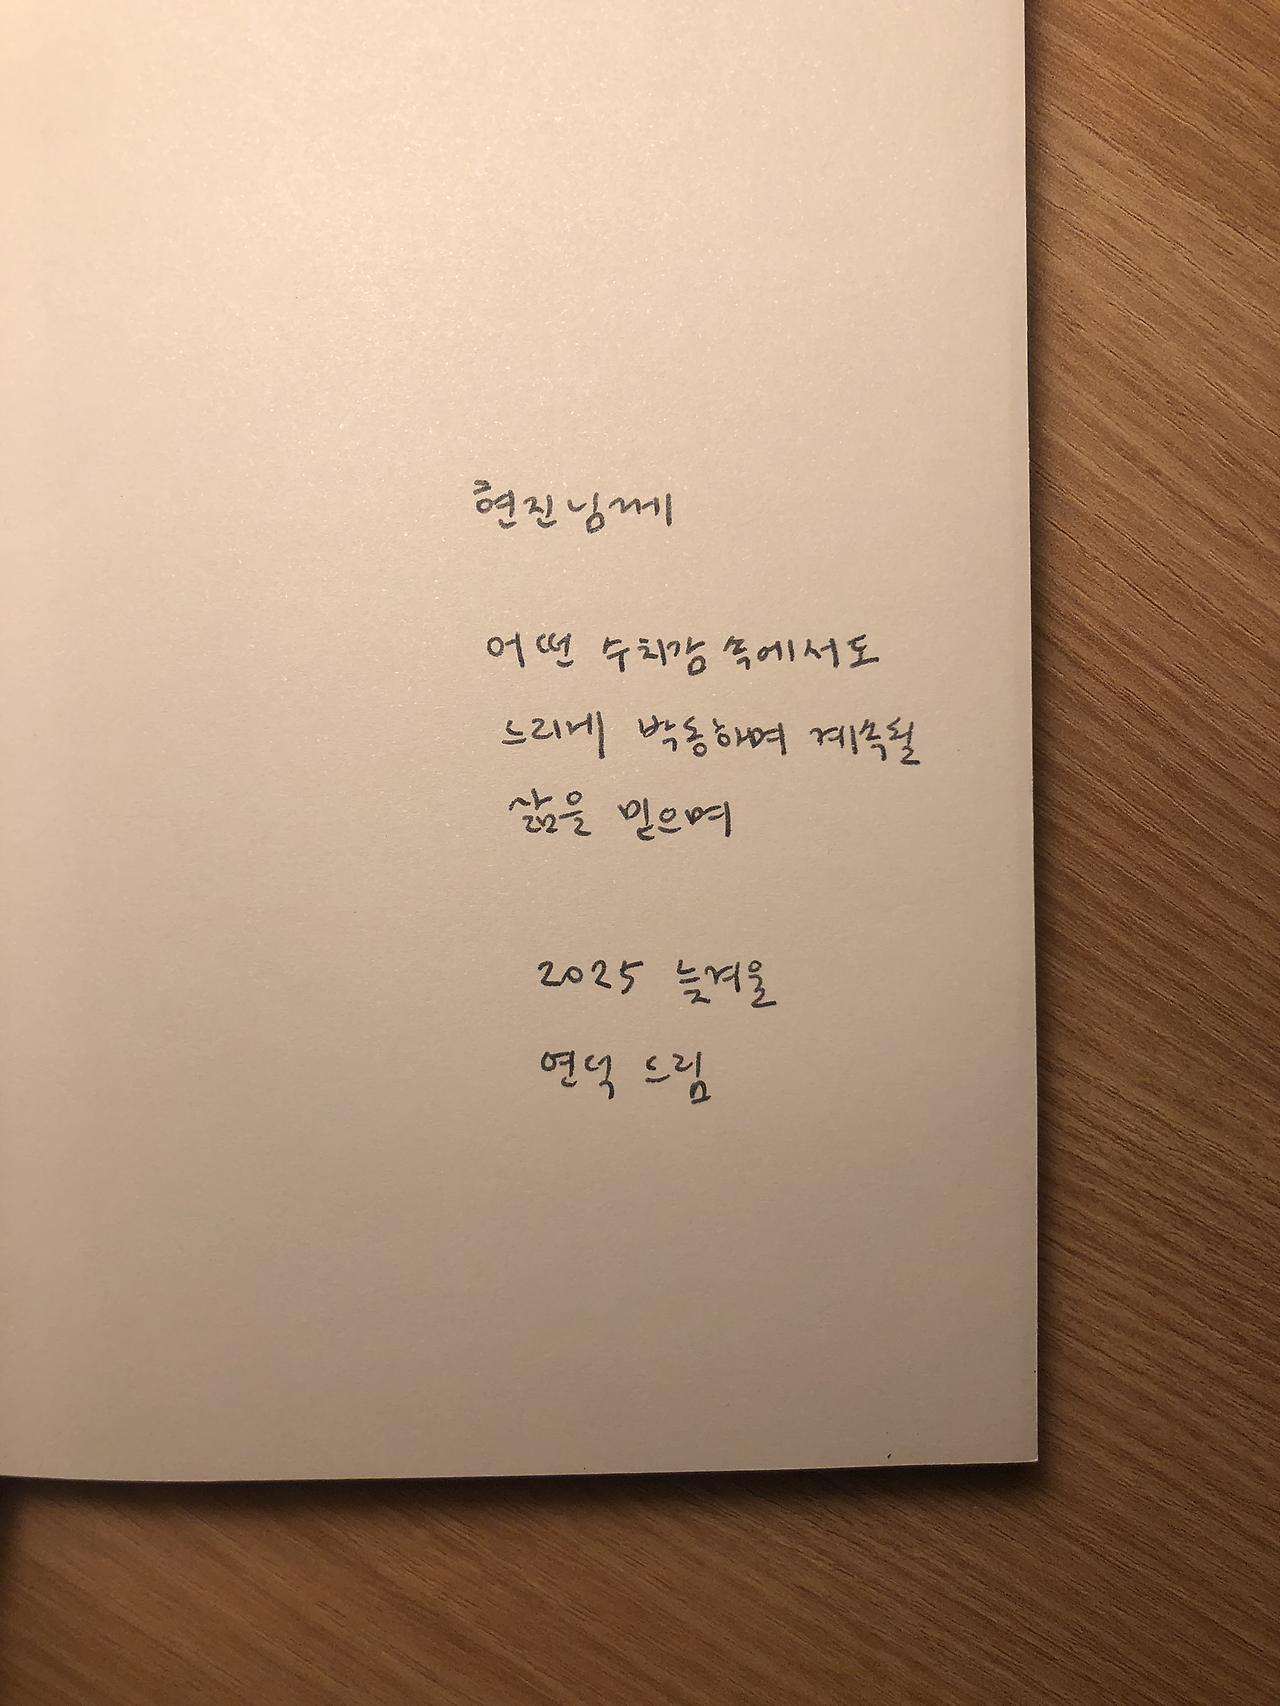 현진님께
어떤 수치감 속에서도
느리게 박동하며 계속될
삶을 믿으며
2025 늦겨울
연덕 드림